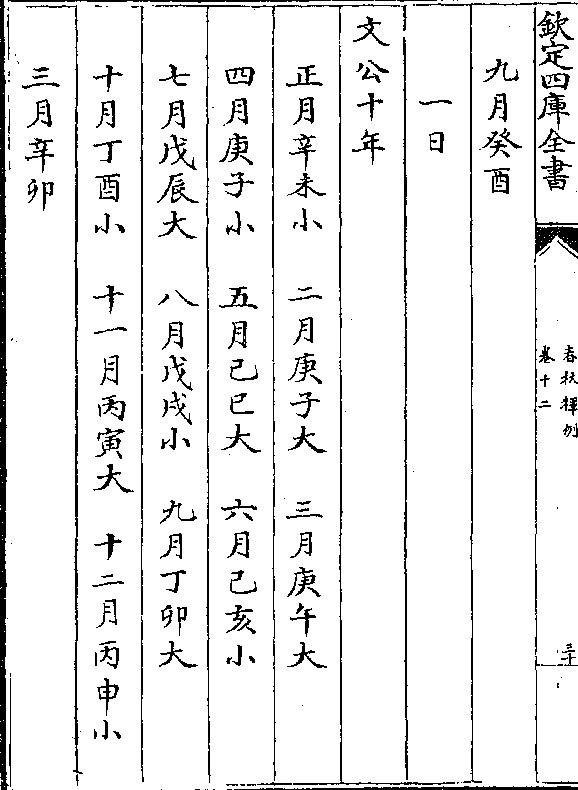 欽定四庫全書
春秋釋例
卷十二
三十
九月癸酉
一日
文公十年
正月辛未小　二月庚子大　三月庚午大
四月庚子小　五月己巳大　六月己亥小
七月戊辰大　八月戊戌小　九月丁卯大
十月丁酉小　十一月丙寅大　十二月丙申小
三月辛卯